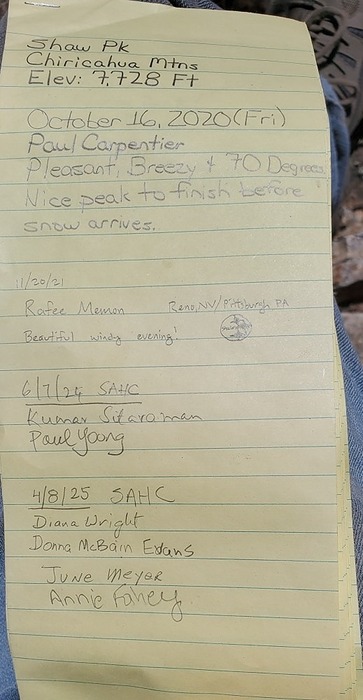 Shaw Pk
Chiricahua Mtns
Elev: 7,728 Ft
October 16, 2020 (Fri)
Paul Carpentier
Pleasant, Breezy + 70 Degrees.
Nice peak to finish before
snow arrives.
11/20/21
Rafee Memon Reno, NV/Pittsburgh PA
Beautiful windy evening!
6/7/24 SAHC
Kumar Sitaraman
Paul Young
4/8/25 SAHC
Diana Wright
Donna McBain Evans
June Meyer
Annie Fahey